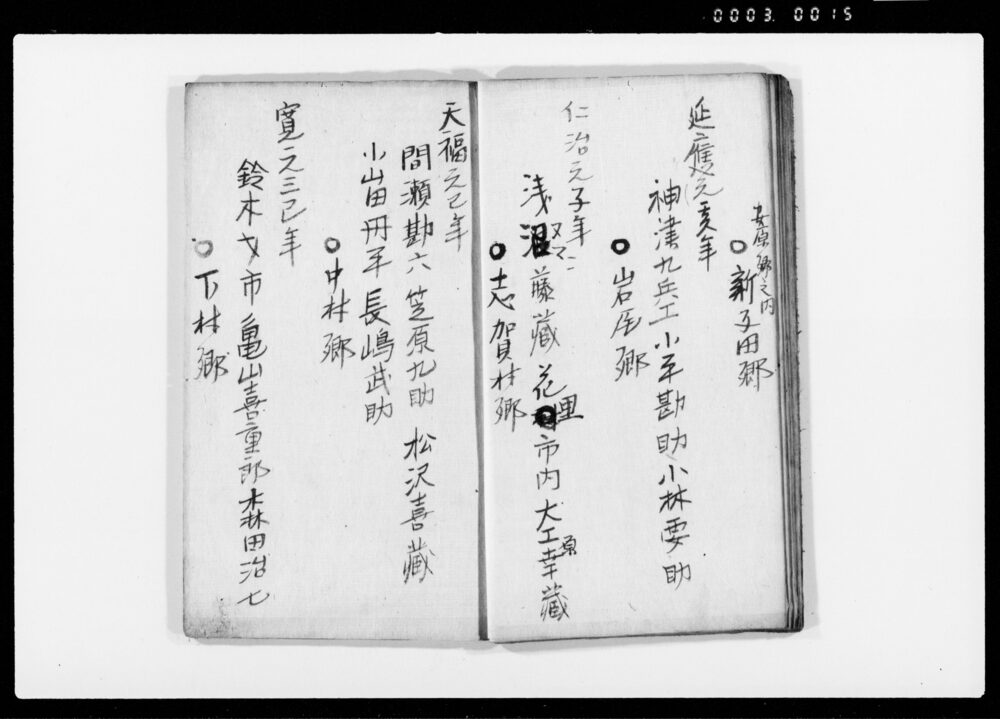 0003 0015
安原郷之内
○新子田郷
延應元亥年
神津九兵工 小平勘助 小林要助
○岩尾郷
仁治元子年
浅沼 藤藏 花里市内 大工原幸藏
○志賀村郷
天福元巳年
間瀬勘六 笠原九助 松沢喜藏
小山田丹平 長嶋武助
○中村郷
寛元三巳年
鈴木才市 亀山喜重郎 森田治七
○下村郷